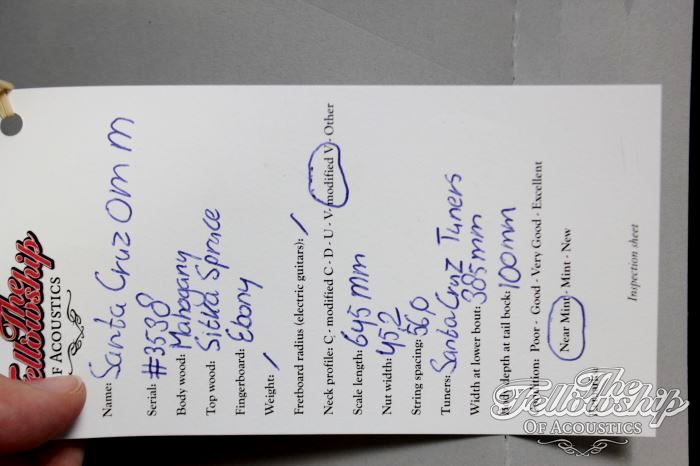 The
Fellowship
OF ACOUSTICS
Name: Santa Cruz OM M
Serial: #3538
Body wood: Mahogany
Top wood: Sitka Spruce
Fingerboard: Ebony
Weight: /
Fretboard radius (electric guitars): /
Neck profile: C - modified C - D - U - V - modified V - Other
Scale length: 645 mm
Nut width: 45,2
String spacing: 56,0
Tuners: Santa Cruz Tuners
Width at lower bout: 385mm
depth at tail bock: 100mm
Poor - Good - Very Good - Excellent
Near Mint - Mint - New
Inspection sheet
The
Fellowship
OF ACOUSTICS